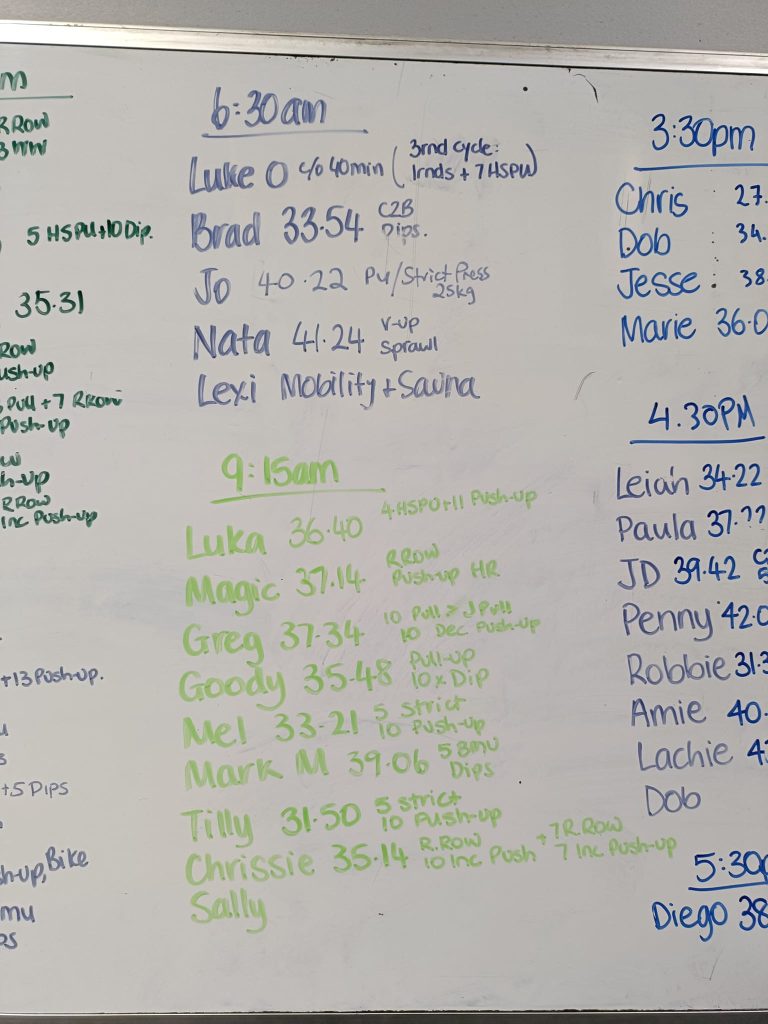 m
RROW
5 HSPU+10 Dip.
35.31
ROW
Push-up
Pull + 7 RRow
Push-up
Push-up
RROW
Inc Push-up
+13 Push-up.
+5 DIPS
Push-up, Bike
6:30am
Luke O c/o 40min (3rnd cycle:
1rnds + 7 HSPU)
Brad 33.54 C2B
Dips.
Jo 40.22 PU/Strict Press
25kg
Nata 41.24 V-up
Sprawl
Lexi Mobility + Sauna
9:15am
Luka 36.40 4 HSPU+11 Push-up
Magic 37.14 RROW
Push-up HR
Greg 37.34 10 Pull > J Pull
10 Dec Push-up
Goody 35.48 Pull-up
10x Dip
Mel 33.21 5 strict
10 Push-up
Mark M 39.06 5 Bmu
Dips
Tilly 31.50 5 strict
10 Push-up
Chrissie 35.14 R.Row + 7 R.Row
10 Inc Push 7 Inc Push-up
Sally
3:30pm
Chris 27.
Dob : 34.
Jesse : 38.
Marie 36.0
4.30PM
Leiah 34.22
Paula 37.??
JD 39.42
Penny 42.0
Robbie 31.3
Amie 40.
Lachie 4
Dob
5:30p
Diego 38